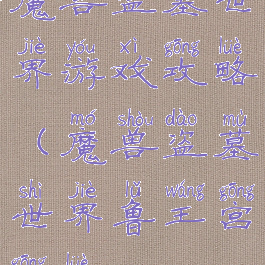 魔兽盗墓世
jiè yóu xì gōng lüè
界游戏攻略
mó shòu dào mù
（魔兽盗墓
shì jiè lǔ wáng gōng
世界鲁王宫
gōng lüè